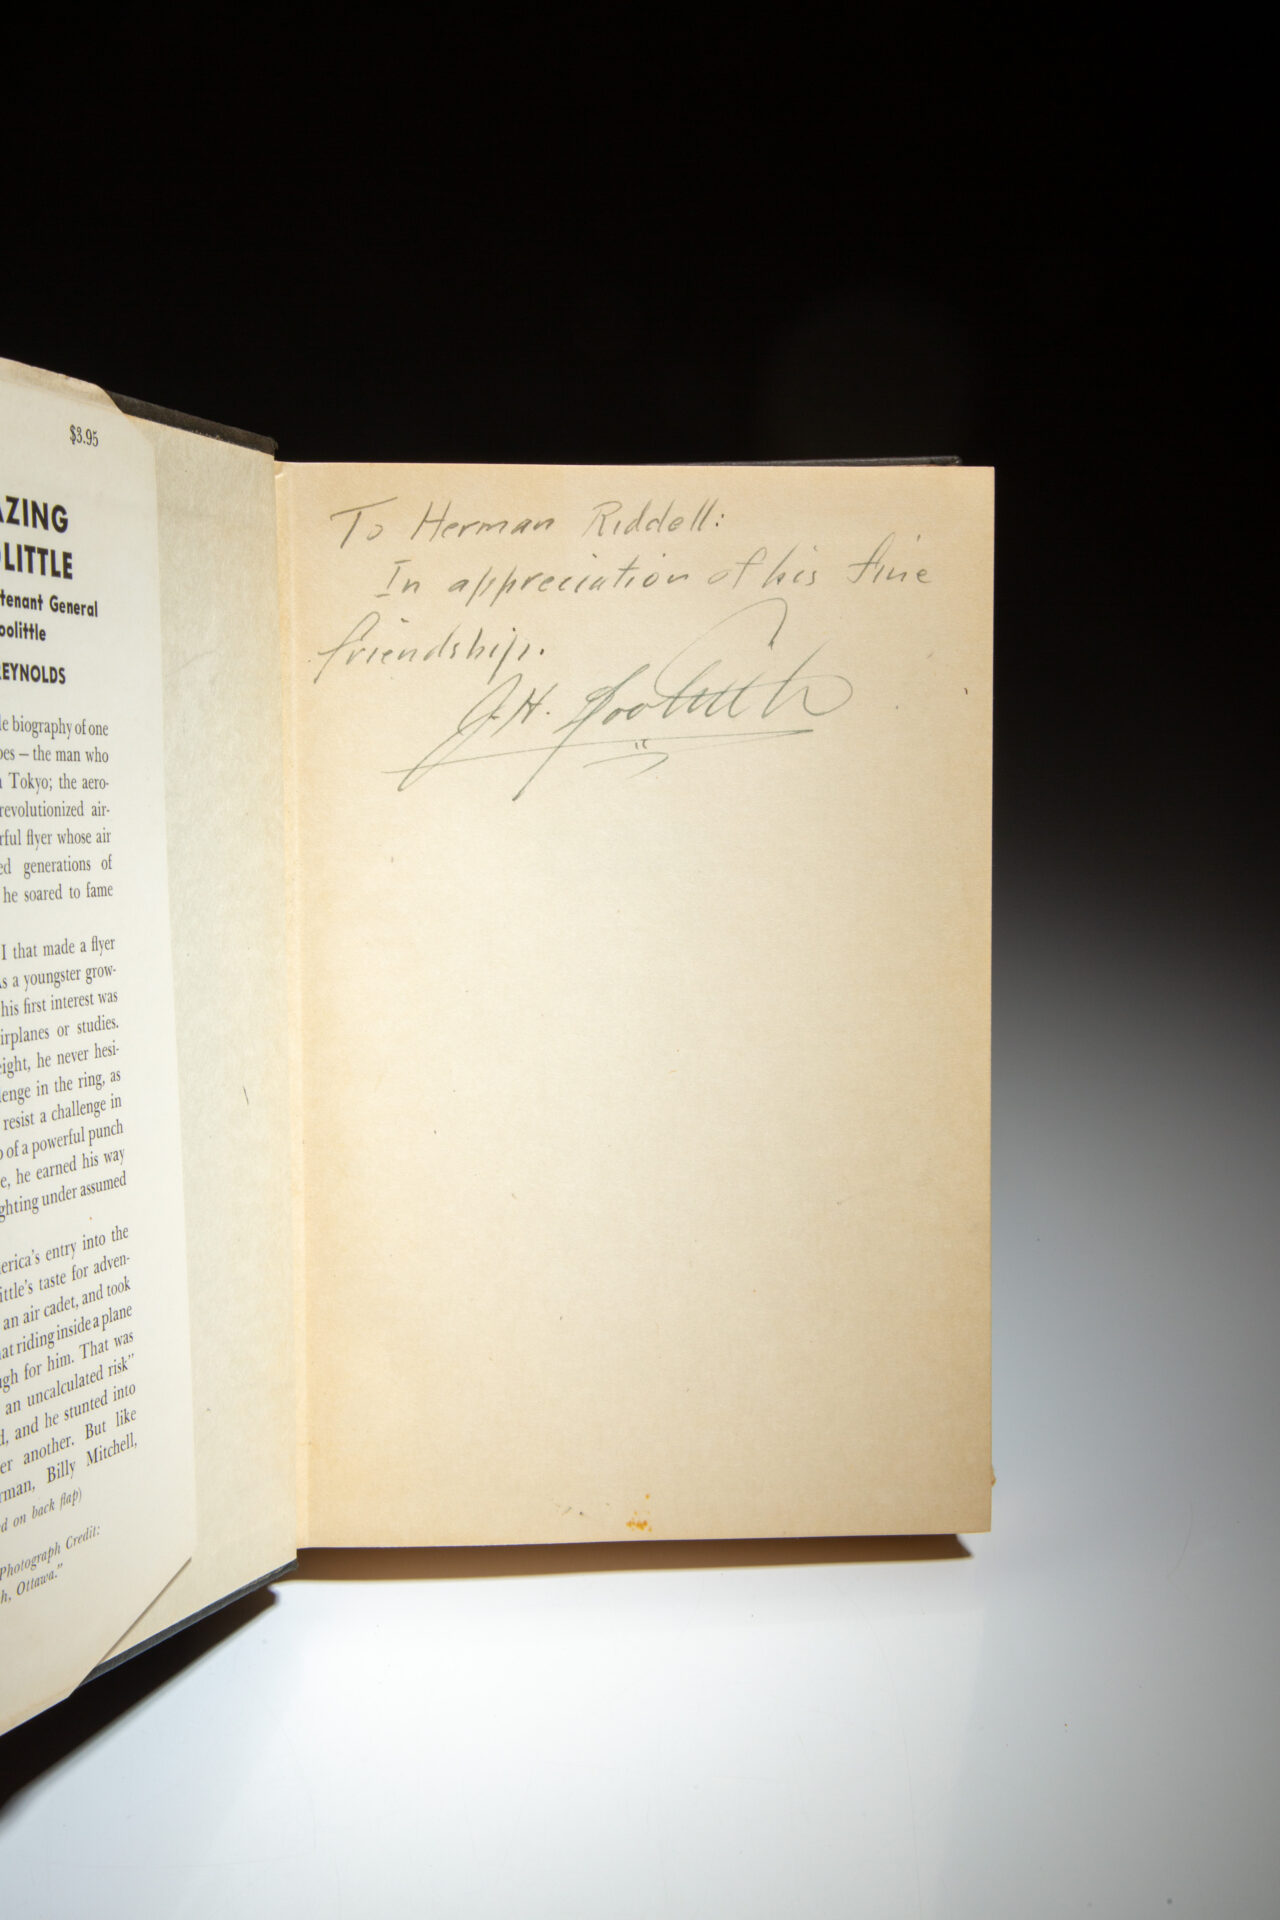 $3.95
AZING
OLITTLE
tenant General
oolittle
REYNOLDS
le biography of one
oes – the man who
n Tokyo; the aero-
revolutionized air-
rful flyer whose air
ed generations of
he soared to fame
I that made a flyer
As a youngster grow-
his first interest was
irplanes or studies.
eight, he never hesi-
lenge in the ring, as
resist a challenge in
p of a powerful punch
e, he earned his way
ghting under assumed
erica's entry into the
ittle's taste for adven-
an air cadet, and took
at riding inside a plane
ugh for him. That was
an uncalculated risk"
d, and he stunted into
er another. But like
rman, Billy Mitchell,
d on back flap)
Photograph Credit:
h, Ottawa."
To Herman Riddell:
In appreciation of his fine
friendship.
J.H. Doolittle